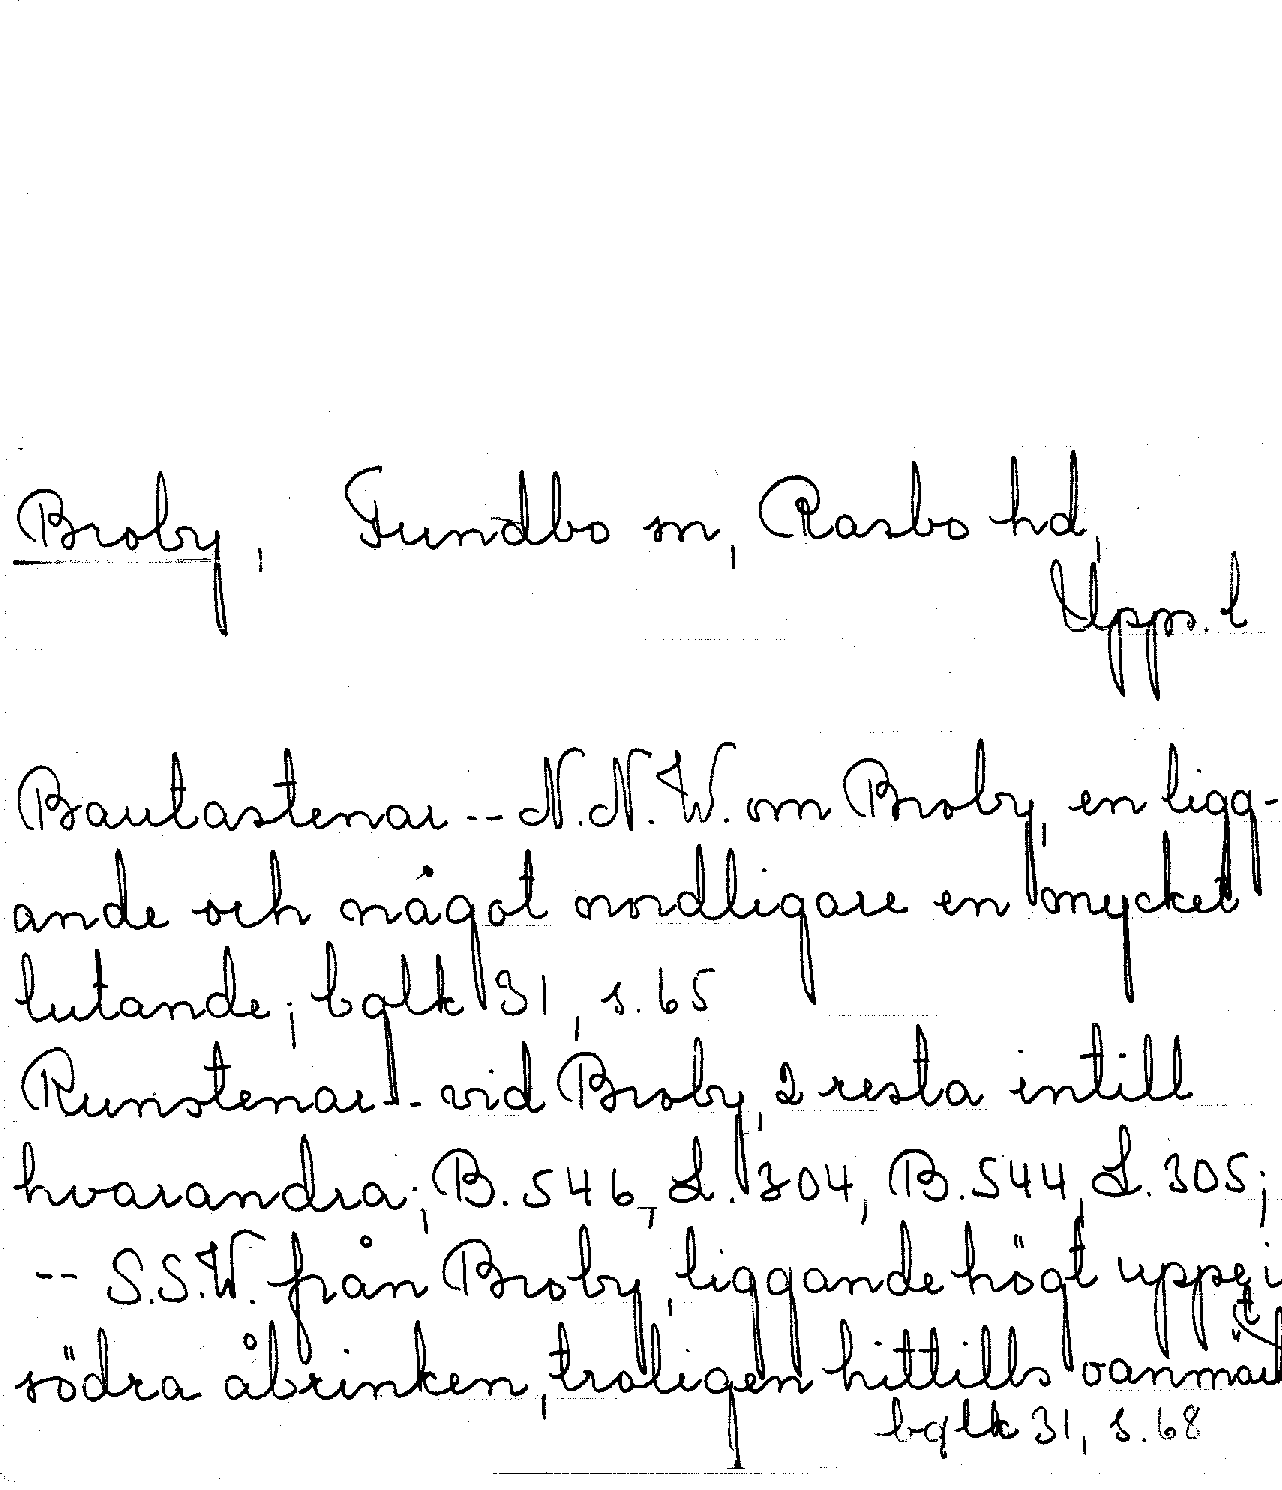 Broby, Fundbo sn, Rasbo hd,
Upps. l
Bautastenar -- N.N.W. om Broby, en ligg-
ande och något nordligare en mycket
lutande; bglk 31, s. 65
Runstenar -- vid Broby, 2 resta intill
hvarandra; B. 546, L. 304, B. 544, L. 305;
-- S.S.W. från Broby, liggande högt uppe i
södra åbrinken, troligen hittills oanmärkt
bglk 31, s. 68